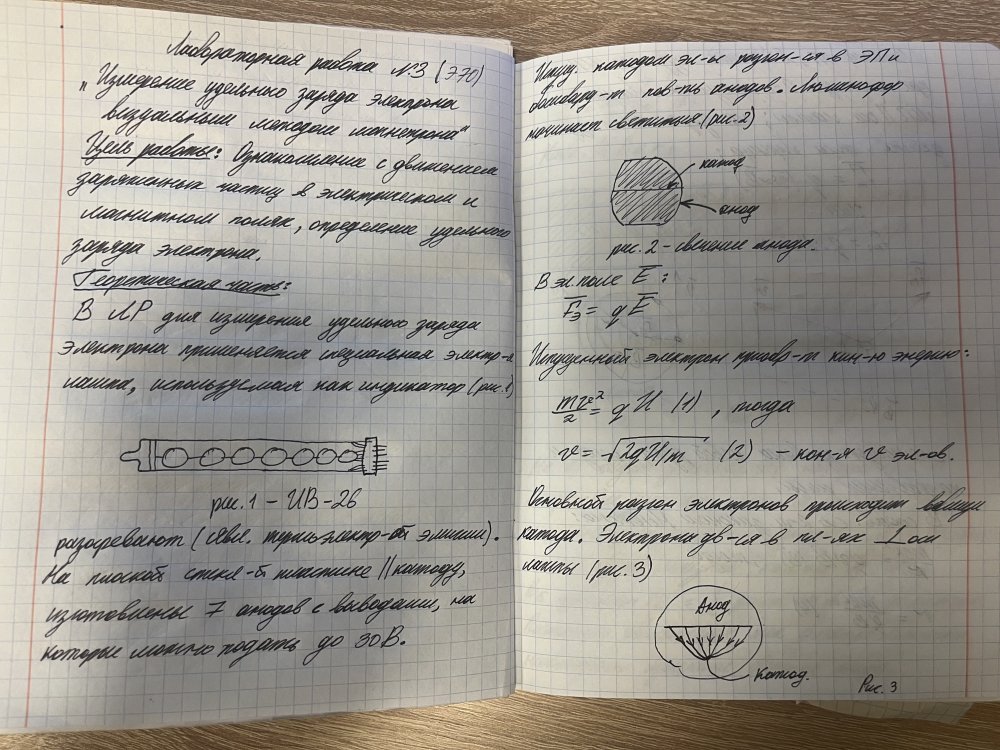 Лабораторная работа №3 (ЭЭ0)
"Измерение удельного заряда электрона
визуальным методом магнетрона"
Цель работы: Ознакомление с движением
заряженных частиц в электрическом и
магнитном полях, определение удельного
заряда электрона.
Теоретическая часть:
В ЛР для измерения удельного заряда
электрона применяется специальная электр-я
лампа, используемая как индикатор (рис.1)
рис.1 – ИВ-26
разогревают (явл. термоэлектр-ой эмиссии).
На плоской стекл-й пластине || катоду,
изготовлены 7 анодов с выводами, на
которые можно подать до 30В.
Испущ. катодом эл-ы разгон-ся в ЭП и
бомбард-т пов-ть анодов. Люминофор
начинает светиться (рис.2)
катод
анод
рис.2 – свечение анода.
В эл.поле E̅:
F̅э = qE̅
Испущенный электрон приобр-т кин-ю энергию:
mv²/2 = qU (1) , тогда
v = √2qU/m (2) – кон-я v эл-ов.
Основной разгон электронов происходит вблизи
катода. Электроны дв-ся в пл-ях ⊥ оси
лампы (рис.3)
Анод
Катод.
Рис. 3